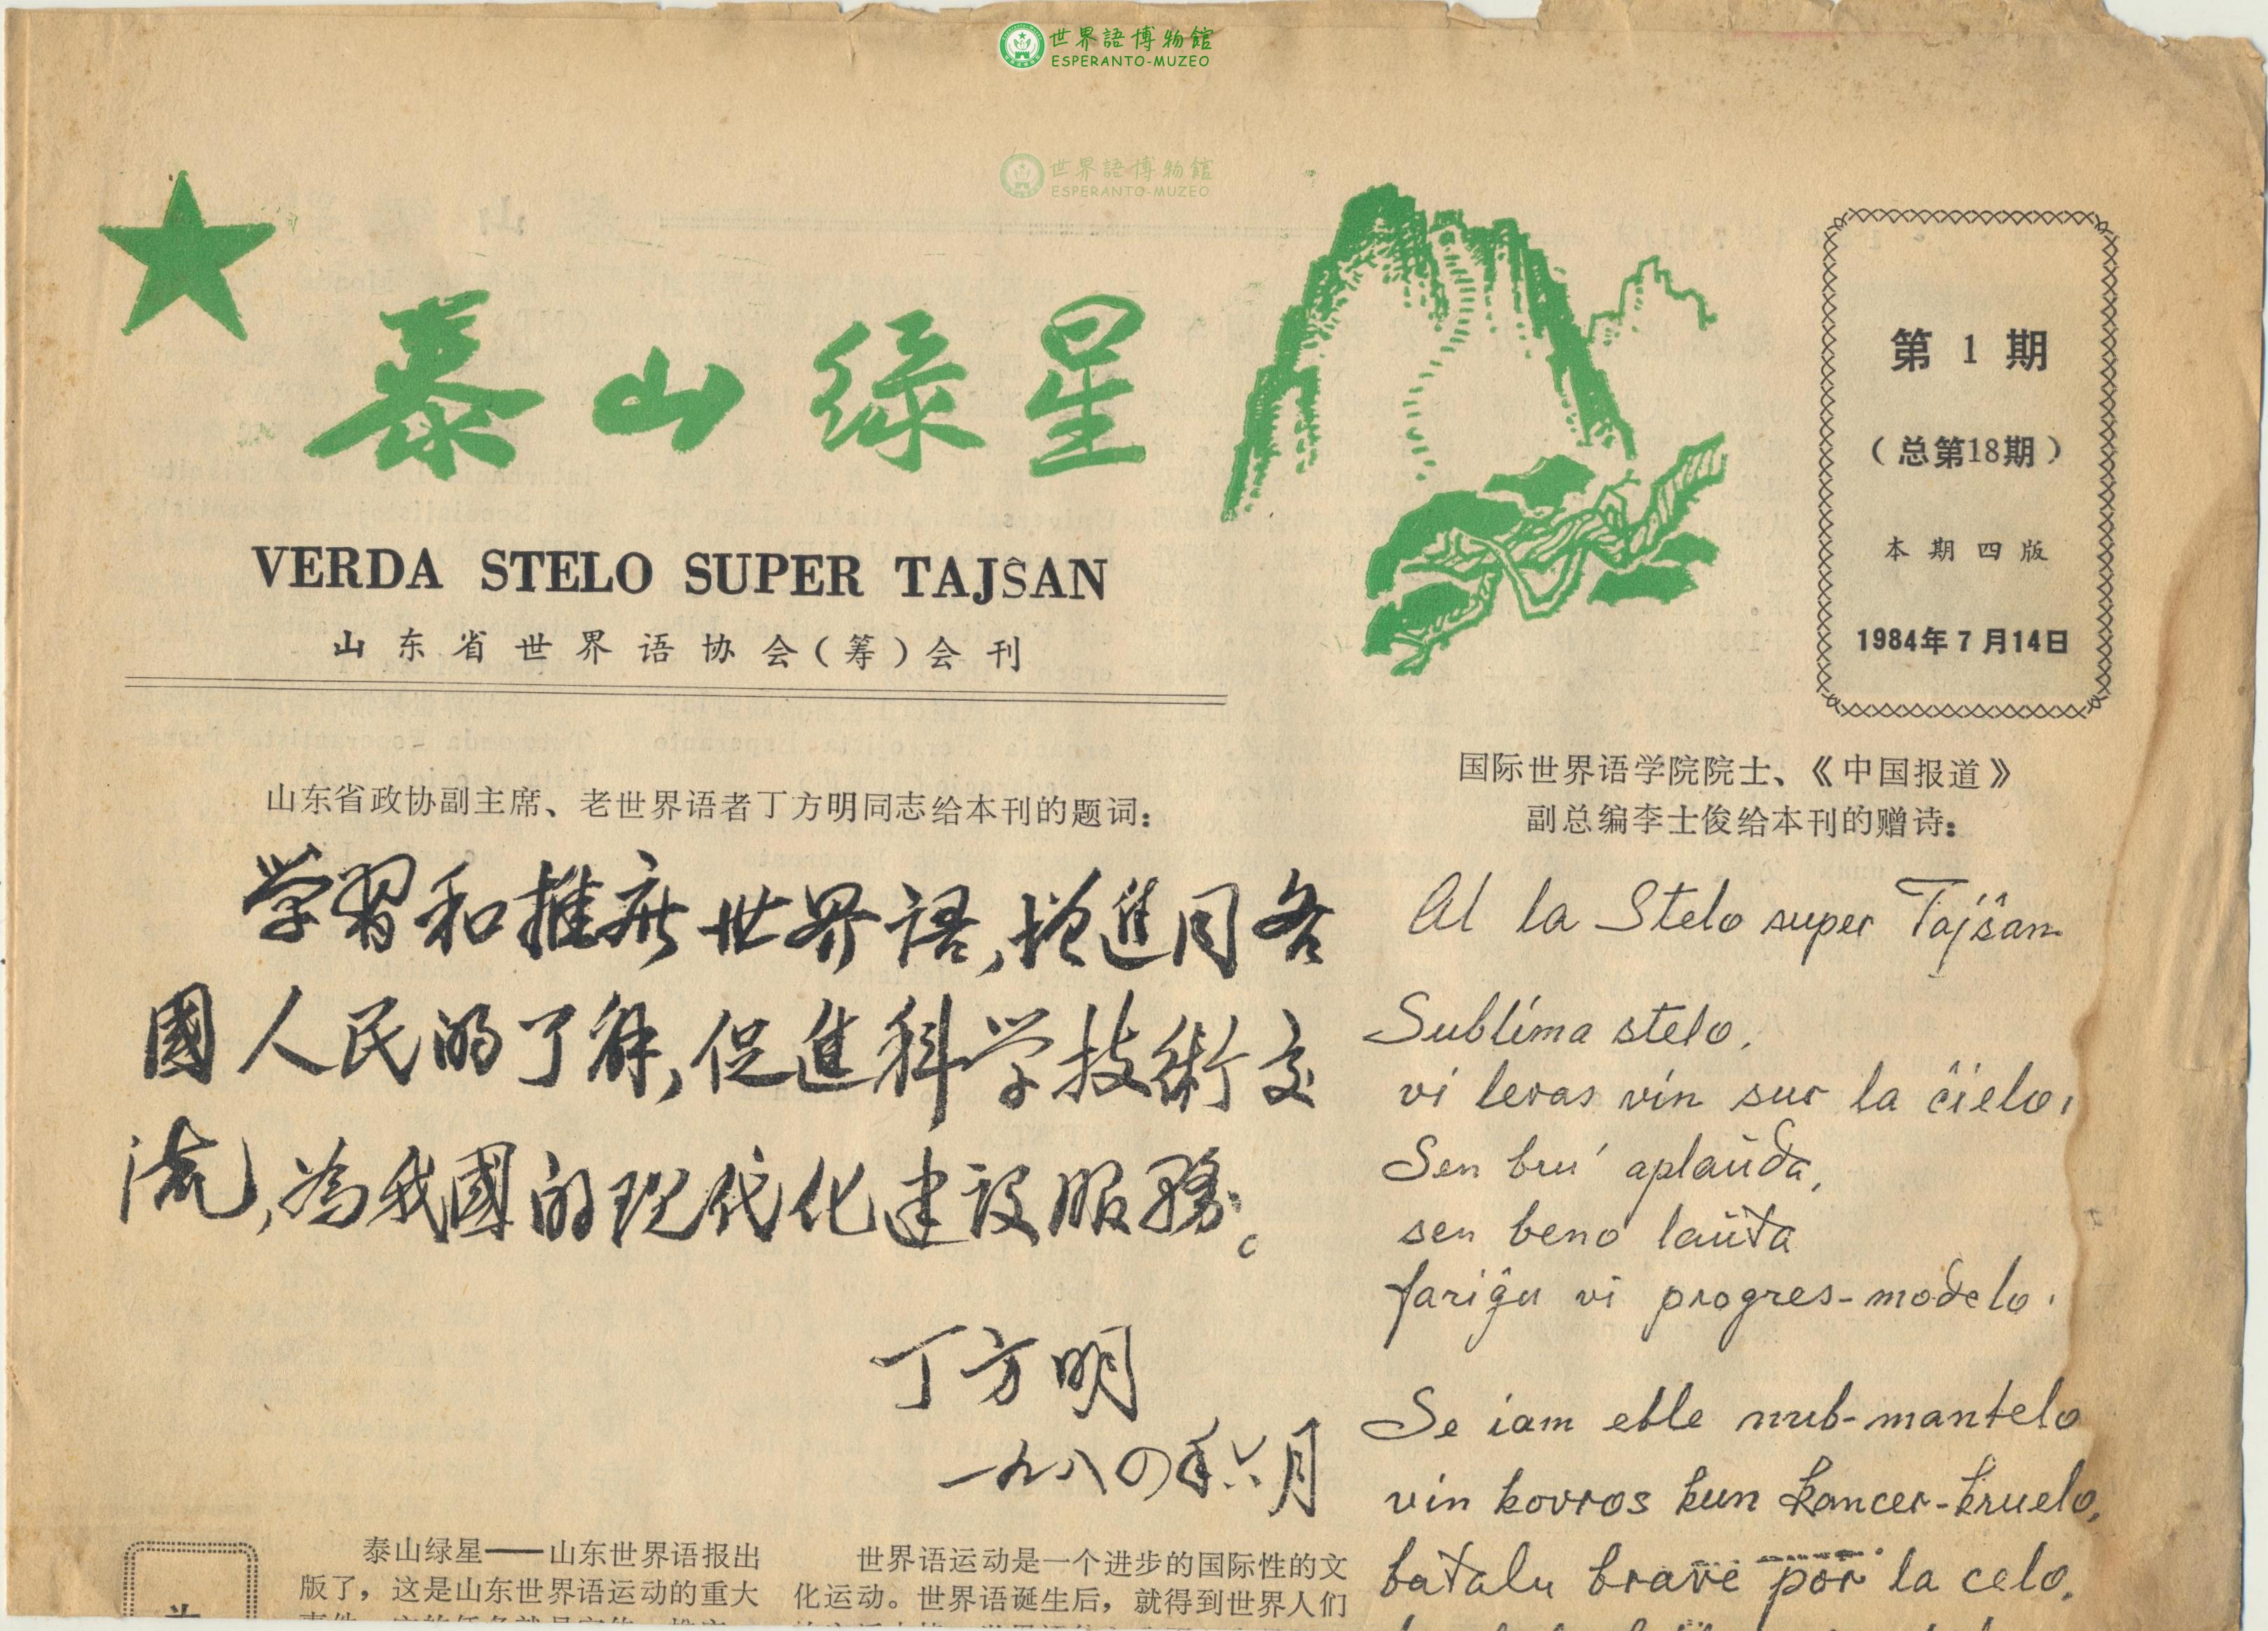 世界語博物館
ESPERANTO-MUZEO
世界語博物館
ESPERANTO-MUZEO
泰山绿星
VERDA STELO SUPER TAJŜAN
山东省世界语协会(筹)会刊
第1期
(总第18期)
本期四版
1984年7月14日
山东省政协副主席、老世界语者丁方明同志给本刊的题词:
学習和推廣世界語,增進同各
國人民的了解,促進科学技術交
流,為我國的現代化建設服務。
丁方明
一九八四年六月
国际世界语学院院士、《中国报道》
副总编李士俊给本刊的赠诗:
Al la Stelo super Tajŝan
Sublima stelo,
vi levas vin sur la ĉielo,
Sen bru' aplaŭda,
sen beno laŭta
fariĝu vi progres-modelo.
Se iam eble nub-mantelo
vin kovros kun kancer-kruelo,
batalu brave por la celo,
泰山绿星——山东世界语报出
版了,这是山东世界语运动的重大
世界语运动是一个进步的国际性的文
化运动。世界语诞生后,就得到世界人们